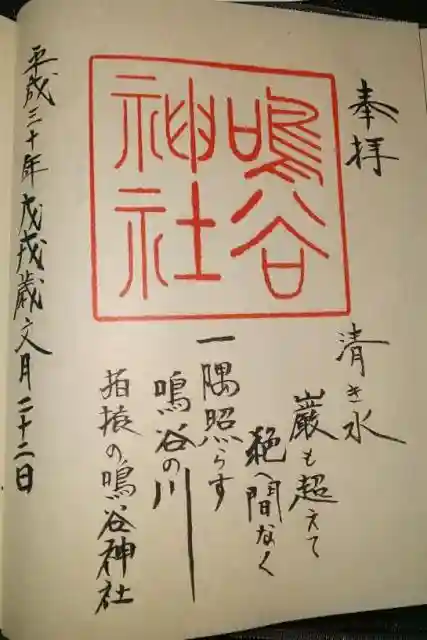 奉拝
鳴谷
神社
清き水
巌も超えて
絶へ間なく
一隅照らす
鳴谷の川
岩猿の鳴谷神社
平成三十年戊戌歳文月二十二日